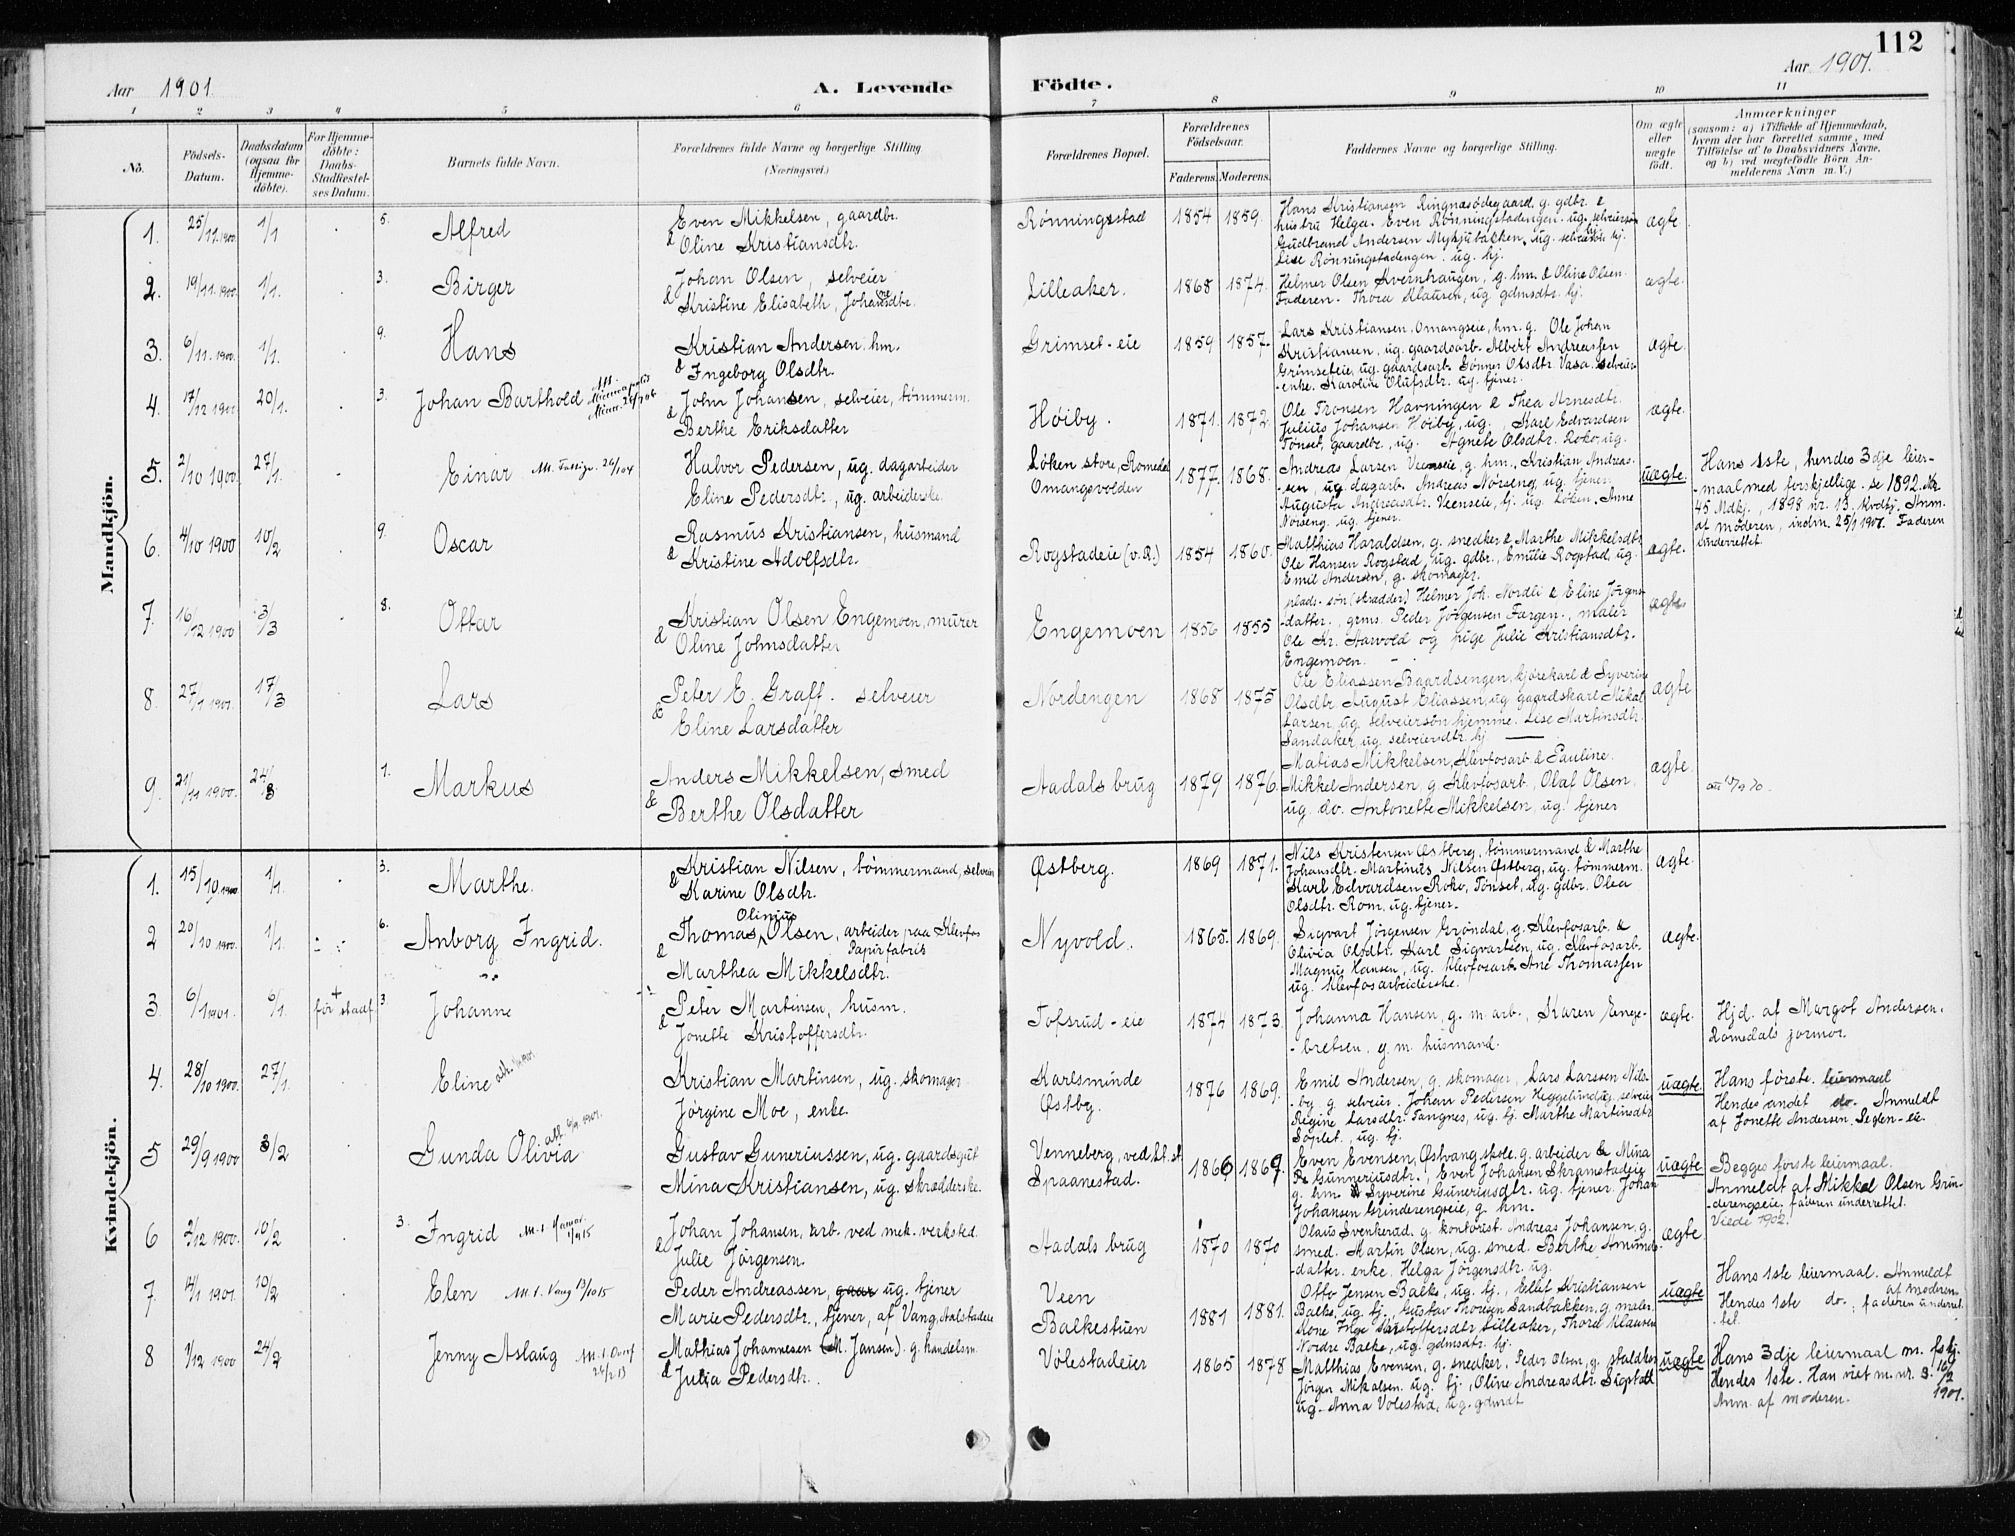 112
Aar 1901.
A. Levende Födte.
Aar 1901.
1 2 3 4 5 6 7 8 9 10 11
No.
Födsels-Datum.
Daabsdatum (ogsaa for Hjemme-döbte).
For Hjemme-döbte: Daabs-Stadfæstel-ses Datum.
Barnets fulde Navn.
Forældrenes fulde Navne og borgerlige Stilling (Næringsvei.)
Forældrenes Bopæl.
Forældrenes Födselsaar.
Faderens. Moderens.
Faddernes Navne og borgerlige Stilling.
Om ægte eller uægte födt.
Anmærkninger
(saasom: a) i Tilfælde af Hjemmedaab,
hvem der har forrettet samme, med
Tilföielse af to Daabsvidners Navne,
og b) ved uægtefödte Börn An-
melderens Navn m. V.)
Mandkjön.
1. 25/11.1900. 1/1 5. Alfred
Even Mikkelsen, gaardbr.
& Oline Kristiansdtr.
Rønningsstad 1854 1859.
Hans Kristiansen Ringnæsødegaard, g. gdbr. &
hustru Helga. Even Rønningstadengen. ug. selveiersøn
Gudbrand Andersen Myhjubakken. ug. selveiersøn hj.
Lise Rønningstadengen. ug. hj.
ægte
2. 19/11.1900. 1/1. 3. Birger
Johan Olsen, selveier
& Kristine Elisabeth, Johansdtr.
Lilleaker. 1868 1874.
Helmer Olsen Kvernhaugen, g. hm. & Oline Olsen.
Faderen. Thora Klausen, ug. gdmsdtr. hj.
ægte.
3. 6/11.1900. 1/1. 9. Hans
Kristian Andersen hm.
& Ingeborg Olsdtr.
Grimset-eie 1859 1857.
Lars Kristiansen, Omangseie, hm. g. Ole Johan
Kristiansen, ug. gaardsarb. Albert Andreassen
Grimseteie, ug. gaardsarb. Sønner Olsdtr. Vasa. Selveier-
-enke. Karoline Olufsdtr. ug. tjener.
ægte.
4. 17/12 1900 20/1. 3. Johan Barthold
John Johansen, selveier, tømmerm.
& Berthe Eriksdatter
Høiby. 1871. 1872.
Ole Tronsen Havningen & Thea Arnesdtr.
Julius Johansen Høiby, ug., Karl Edvardsen
Tønset, gaardbr., ug. Agnete Olsdtr. Roko, ug.
ægte.
5. 2/10 1900. 27/1. Einar
Halvor Pedersen, ug. dagarbeider
Eline Pedersdtr., ug. arbeiderske.
Løken store, Romedal
Omangsvolden
1877. 1868.
Andreas Larsen Veenseie, g. hm., Kristian Andreas-
-sen, ug. dagarb. Andreas Nørseng, ug. tjener,
Augusta Andreasdtr. Veenseie, hj. ug. Løken. Anne
Nørseng. ug. tjener.
uægte.
Hans 1ste, hendes 3dje leier-
-maal med forskjellige. se 1892. Nr.
45 Mdkj., 1898 nr. 13. Kvdkj. Anm.
af moderen, indm. 25/1 1901. Faderen
underrettet.
6. 4/10 1900 10/2 9. Oscar
Rasmus Kristiansen, husmand
& Kristine Adolfsdtr.
Rogstadeie (v. R.) 1854 1860.
Matthias Haraldsen, g. snedker & Marthe Mikkelsdtr.
Ole Hansen Rogstad, ug. gdbr., Emilie Rogstad, ug.
Emil Andersen, g. skomager.
ægte.
7. 16/12 1900 3/3 8. Ottar
Kristian Olsen Engemoen, murer
& Oline Johnsdatter
Engemoen 1856 1855
plads-søn (skrædder) Helmer Joh. Nordli & Eline Jørgens-
-datter., grms. Peder Jørgensen Fargen, maler
Ole Kr. Aasvold og pige Julie Kristiansdtr.
Engemoen.
ægte
8. 27/1 1901. 17/3 Lars
Peter E. Graff. selveier
& Eline Larsdatter
Nordengen 1868 1875
Ole Eliassen Baardsengen, kjørekarl & Syverine
Olsdtr. August Eliassen, ug. gaardskarl Mikal
Larsen, ug. selveiersøn hjemme. Lise Martinsdtr.
Sandaker, ug. selveierdtr. hj
ægte
9. 21/11 1900. 24/3 1. Markus
Anders Mikkelsen, smed
& Berthe Olsdatter
Aadals brug 1879 1876.
Matias Mikkelsen, Klevfosarb & Pauline.
Mikkel Andersen, g. Klevfosarb., Olaf Olsen,
ug. do. Antonette Mikkelsen, ug. tjener
ægte.
Kvindekjön.
1. 15/10.1900 1/1. 3. Marthe.
Kristian Nilsen, tømmermand, selveier
& Karine Olsdtr.
Østberg. 1869 1871.
Nils Kristensen Østberg, tømmermand & Marthe
Johansdtr. Martinus Nilsen Østberg, ug. tømmerm.
Karl Edvardsen Roko, Tønset, ug. gdbr. Olea
Olsdtr. Rom, ug. tjener.
ægte.
2 20/10 1900. 1/1. 6. Anborg Ingrid.
Thomas Olinius Olsen, arbeider paa Klevfos
Papirfabrik
& Marthea Mikkelsdtr.
Nyvold. 1865. 1869.
Sigvart Jørgensen Grøndal, g. Klevfosarb. &
Olivia Olsdtr. Karl Sigvartsen, ug. Klevfosarb.
Magnus Hansen, ug. Klevfosarb. Ane Thomassen
ug. Klevfosarbeiderske.
ægte.
3 6/1 1901. 6/1. før stadf. 3. Johanne
Peter Martinsen, husm.
& Jonette Kristoffersdtr.
Tofsrud-eie 1874 1873.
Johanna Hansen, g. m. arb., Karen Enge-
-bretsen, g. m. husmand.
ægte.
Hjd. af Margot Andersen,
Romedals jormor.
4. 28/10 1900. 27/1. Eline
Kristian Martinsen, ug. skomager
Jørgine Moe, enke.
Karlsminde
Østby.
1876 1869.
Emil Andersen, g. skomager, Lars Larssen Nils-
-by g. selveier. Johan Pedersen Heggelund, ug. selveier
Regine Larsdtr. Tangnes, ug. hj. Marthe Martinsdtr.
Soplet., ug. hj.
uægte.
Hans første. leiermaal
Hendes andet do. Anmeldt
af Jonette Andersen, Seglen-eie.
5 29/9 1900 3/2 Gunda Olivia
Gustav Guneriussen, ug. gaardsgut
Mina Kristiansen, ug. skrædderske.
Venneberg, ved
Spaanestad.
1866 1869.
Even Evensen, Østvang skole, g. arbeider & Mina
Gunneriusdtr., Even Johansen Skramstadeie
g. hm. & Syverine Guneriusdtr. ug. tjener. Johan
Johansen Grinderengseie, g. hm.
uægte
Begges første leiermaal.
Anmeldt af Mikkel Olsen Grin-
derengseie. faderen underrettet.
Viede 1902.
6 2/12 1900. 10/2 3. Ingrid
Johan Johansen, arb. ved mek. verksted.
& Julie Jørgensen.
Aadals brug 1870 1870
Olaus Svenkerud, g. kontorist. Andreas Johansen, g.
smed. Martin Olsen, ug. smed. Berthe Amunds-
-datter. enke. Helga Jørgensdtr. ug.
ægte
7 14/1 1901. 10/2 Elen M. t. Vang 13/10 15
Peder Andreassen, gaar ug. tjener
Marie Pedersdtr., tjener, af Vang, Aalstadeie
Veen
Balkestuen
1881 1881.
Otto Jensen Balke, ug. hj., Ellef Kristiansen
Balke, ug. hj., Gustav Thorsen Sandbakken, g. maler.
Kone Inge Kristoffersdtr, Lilleaker, Thora Klausen
Nordre Balke, ug. gdmsdtr. hj.
uægte
Hans 1ste leiermaal. Anmeldt
af moderen.
Hendes 1ste do. faderen underret-
tet.
8 1/12 1900 24/2 Jenny Aslaug
Mathias Johannesen (M. Jansen). g. handelsm.
& Julia Pedersdtr.
Volestadeier 1865 1878
Matthias Evensen, g. snedker, Peder Olsen, g. staldkar
Jørgen Mikalsen, ug. hj., Oline Andreasdtr
ug. Anna Volestad, ug. gdmdt
uægte
Hans 3dje leiermaal m. fskj.
Hendes 1ste. Han viet m. nr. 3. 16/2 1901.
Anm. af moderen.